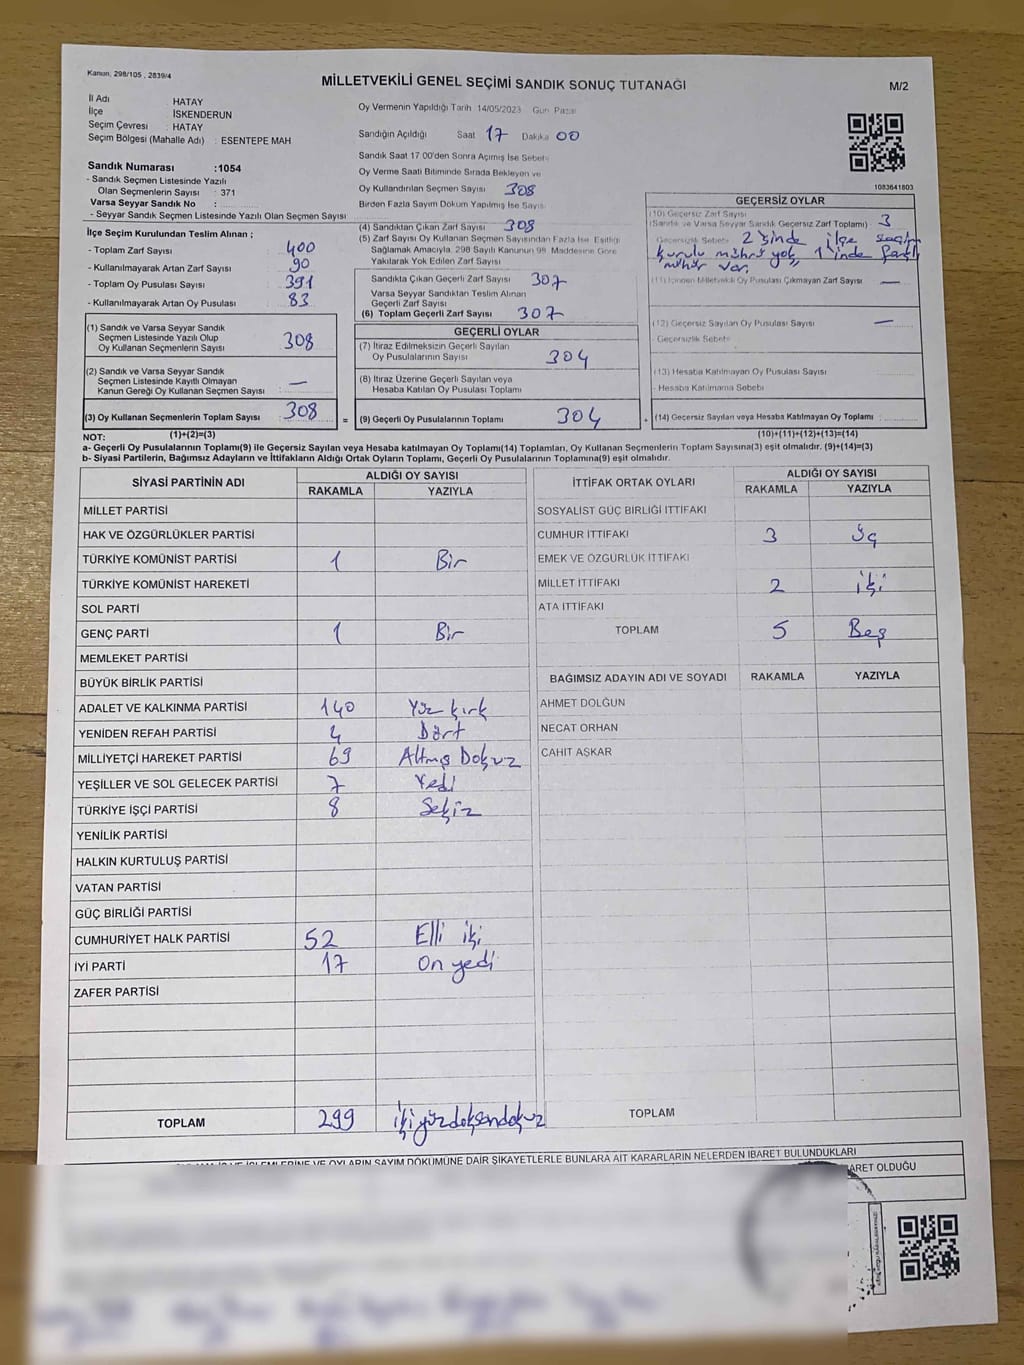 Kanun, 298/105 , 2839/4
MİLLETVEKİLİ GENEL SEÇİMİ SANDIK SONUÇ TUTANAĞI
M/2
İl Adı HATAY
İlçe İSKENDERUN
Seçim Çevresi : HATAY
Seçim Bölgesi (Mahalle Adı) : ESENTEPE MAH
Sandık Numarası :1054
- Sandık Seçmen Listesinde Yazılı
Olan Seçmenlerin Sayısı : 371
Varsa Seyyar Sandık No :
- Seyyar Sandık Seçmen Listesinde Yazılı Olan Seçmen Sayısı
İlçe Seçim Kurulundan Teslim Alınan ;
- Toplam Zarf Sayısı : 400
- Kullanılmayarak Artan Zarf Sayısı : 90
- Toplam Oy Pusulası Sayısı : 391
- Kullanılmayarak Artan Oy Pusulası : 83
(1) Sandık ve Varsa Seyyar Sandık
Seçmen Listesinde Yazılı Olup
Oy Kullanan Seçmenlerin Sayısı 308
(2) Sandık ve Varsa Seyyar Sandık
Seçmen Listesinde Kayıtlı Olmayan
Kanun Gereği Oy Kullanan Seçmen Sayısı : —
(3) Oy Kullanan Seçmenlerin Toplam Sayısı 308
Oy Vermenin Yapıldığı Tarih 14/05/2023 Gün Pazar
Sandığın Açıldığı Saat 17 Dakika 00
Sandık Saat 17 00'den Sonra Açılmış İse Sebebi
Oy Verme Saati Bitiminde Sırada Bekleyen ve
Oy Kullandırılan Seçmen Sayısı 308
Birden Fazla Sayım Döküm Yapılmış İse Sayısı
(4) Sandıktan Çıkan Zarf Sayısı 308
(5) Zarf Sayısı Oy Kullanan Seçmen Sayısından Fazla İse Eşitliği
Sağlamak Amacıyla, 298 Sayılı Kanunun 98. Maddesine Göre
Yakılarak Yok Edilen Zarf Sayısı
Sandıkta Çıkan Geçerli Zarf Sayısı : 307
Varsa Seyyar Sandıktan Teslim Alınan
Geçerli Zarf Sayısı
(6) Toplam Geçerli Zarf Sayısı : 307
GEÇERLİ OYLAR
(7) İtiraz Edilmeksizin Geçerli Sayılan
Oy Pusulalarının Sayısı 304
(8) İtiraz Üzerine Geçerli Sayılan veya
Hesaba Katılan Oy Pusulası Toplamı
= (9) Geçerli Oy Pusulalarının Toplamı 304
1083641803
GEÇERSİZ OYLAR
(10) Geçersiz Zarf Sayısı
(Sandık ve Varsa Seyyar Sandık Geçersiz Zarf Toplamı) : 3
Geçersizlik Sebebi 2 sinde ilçe seçim
kurulu mührü yok, 1'inde farklı
mühür var.
(11) İçinden Milletvekili Oy Pusulası Çıkmayan Zarf Sayısı —
(12) Geçersiz Sayılan Oy Pusulası Sayısı —
- Geçersizlik Sebebi
(13) Hesaba Katılmayan Oy Pusulası Sayısı
- Hesaba Katılmama Sebebi
+ (14) Geçersiz Sayılan veya Hesaba Katılmayan Oy Toplamı
NOT: (1)+(2)=(3) (10)+(11)+(12)+(13)=(14)
a- Geçerli Oy Pusulalarının Toplamı(9) ile Geçersiz Sayılan veya Hesaba katılmayan Oy Toplamı(14) Toplamları, Oy Kullanan Seçmenlerin Toplam Sayısına(3) eşit olmalıdır. (9)+(14)=(3)
b- Siyasi Partilerin, Bağımsız Adayların ve İttifakların Aldığı Ortak Oyların Toplamı, Geçerli Oy Pusulalarının Toplamına(9) eşit olmalıdır.
SİYASİ PARTİNİN ADI ALDIĞI OY SAYISI
RAKAMLA YAZIYLA
MİLLET PARTİSİ
HAK VE ÖZGÜRLÜKLER PARTİSİ
TÜRKİYE KOMÜNİST PARTİSİ 1 Bir
TÜRKİYE KOMÜNİST HAREKETİ
SOL PARTİ
GENÇ PARTİ 1 Bir
MEMLEKET PARTİSİ
BÜYÜK BİRLİK PARTİSİ
ADALET VE KALKINMA PARTİSİ 140 Yüz kırk
YENİDEN REFAH PARTİSİ 4 Dört
MİLLİYETÇİ HAREKET PARTİSİ 69 Altmış Dokuz
YEŞİLLER VE SOL GELECEK PARTİSİ 7 Yedi
TÜRKİYE İŞÇİ PARTİSİ 8 Sekiz
YENİLİK PARTİSİ
HALKIN KURTULUŞ PARTİSİ
VATAN PARTİSİ
GÜÇ BİRLİĞİ PARTİSİ
CUMHURİYET HALK PARTİSİ 52 Elli iki
İYİ PARTİ 17 On yedi
ZAFER PARTİSİ
TOPLAM 299 ikiyüzdoksandokuz
İTTİFAK ORTAK OYLARI ALDIĞI OY SAYISI
RAKAMLA YAZIYLA
SOSYALİST GÜÇ BİRLİĞİ İTTİFAKI
CUMHUR İTTİFAKI 3 Üç
EMEK VE ÖZGÜRLÜK İTTİFAKI
MİLLET İTTİFAKI 2 iki
ATA İTTİFAKI
TOPLAM 5 Beş
BAĞIMSIZ ADAYIN ADI VE SOYADI RAKAMLA YAZIYLA
AHMET DOLĞUN
NECAT ORHAN
CAHİT AŞKAR
TOPLAM
İŞLEMLERİNE VE OYLARIN SAYIM DÖKÜMÜNE DAİR ŞİKAYETLERLE BUNLARA AİT KARARLARIN NELERDEN İBARET BULUNDUKLARI
BARET OLDUĞU